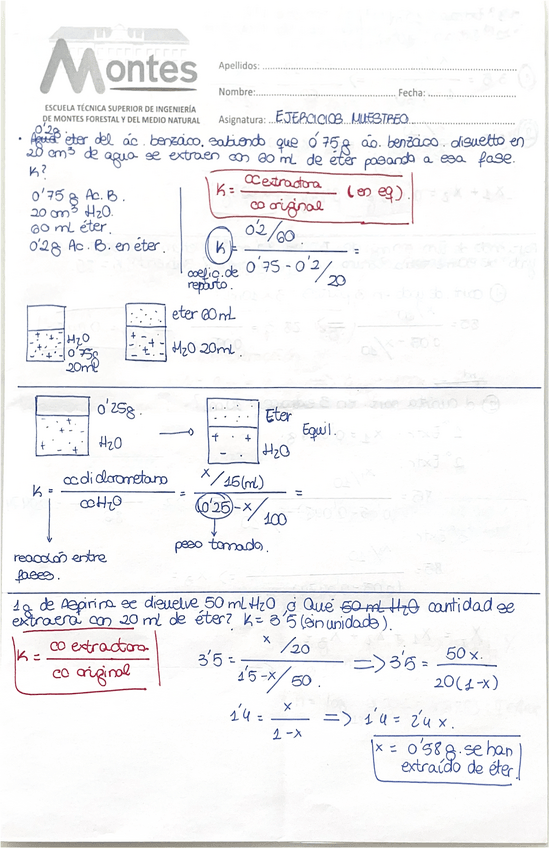 Montes
ESCUELA TÉCNICA SUPERIOR DE INGENIERÍA
DE MONTES FORESTAL Y DEL MEDIO NATURAL
Apellidos:
Nombre: Fecha:
Asignatura: EJERCICIOS MUESTREO
0'2g
• eter del ác. benzóico, sabiendo que 0'75g ác. benzóico. disuelto en
20 cm³ de agua se extraen con 60 ml de éter pasando a esa fase.
K?
0'75 g Ac. B.
20 cm³ H₂O.
60 ml éter.
0'2g Ac. B. en éter.
K = cc extractora / cc original (en eq).
K = 0'2/60 / 0'75 - 0'2/20 =
coefic. de
reparto.
H₂O
0'75g
20ml
eter 60 mL
H₂O 20mL.
0'25g.
H₂O
Eter
Equil.
H₂O
K = cc diclorometano / cc H₂O = x/15(ml) / 0'25-x/100 =
reacción entre
fases.
peso tomado.
1g de Aspirina se disuelve 50 ml H₂O ¿ Qué 50 ml H₂O cantidad se
extraerá con 20 ml de éter? K = 3'5 (sin unidades).
K = cc extractora / cc original
3'5 = x/20 / 1'5-x/50. => 3'5 = 50x. / 20(1-x)
1'4 = x / 1-x => 1'4 = 2'4 x.
x = 0'58 g. se han
extraído de éter.